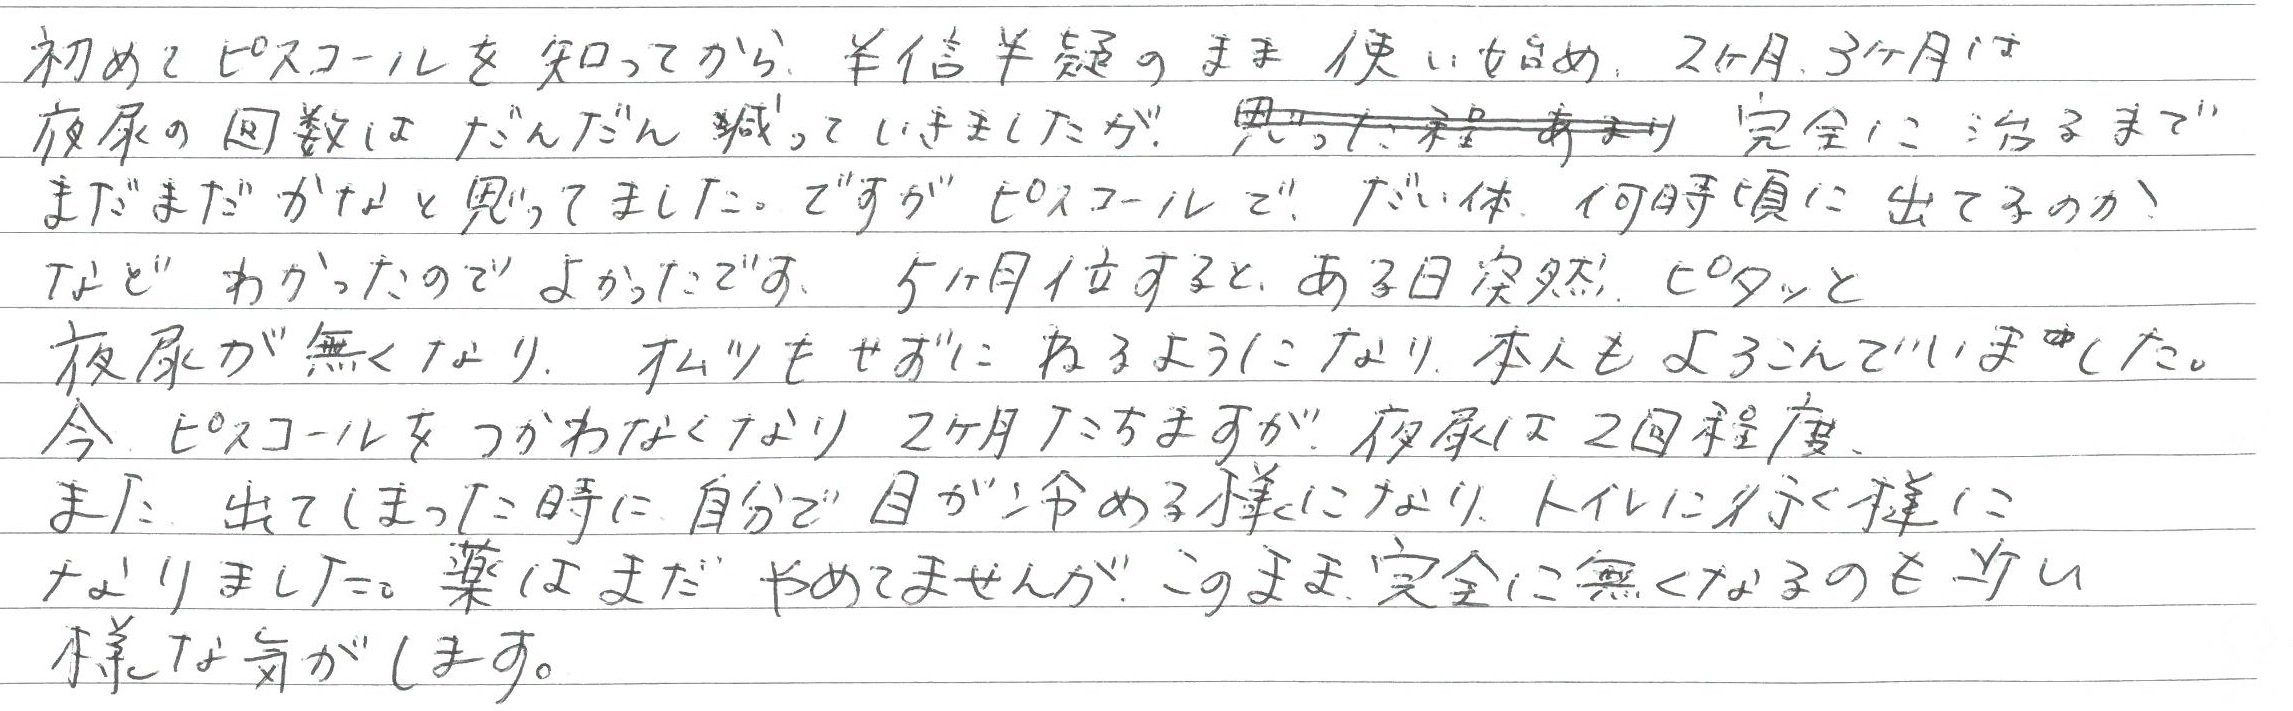 初めてピスコールを知ってから、半信半疑のまま使い始め、2ヶ月、3ヶ月は
夜尿の回数はだんだん減っていきましたが、思った程 あまり 完全に治るまで
まだまだかなと思ってました。ですがピスコールで、だい体、何時頃に出てるのか、
などわかったのでよかったです。 5ヶ月位すると、ある日突然、ピタッと
夜尿が無くなり、オムツもせずにねるようになり、本人もよろこんでいました。
今、ピスコールをつかわなくなり2ヶ月たちますが、夜尿は2回程度、
また、出てしまった時に、自分で目が冷める様になり、トイレに行く様に
なりました。薬はまだやめてませんが、このまま、完全に無くなるのも近い
様な気がします。